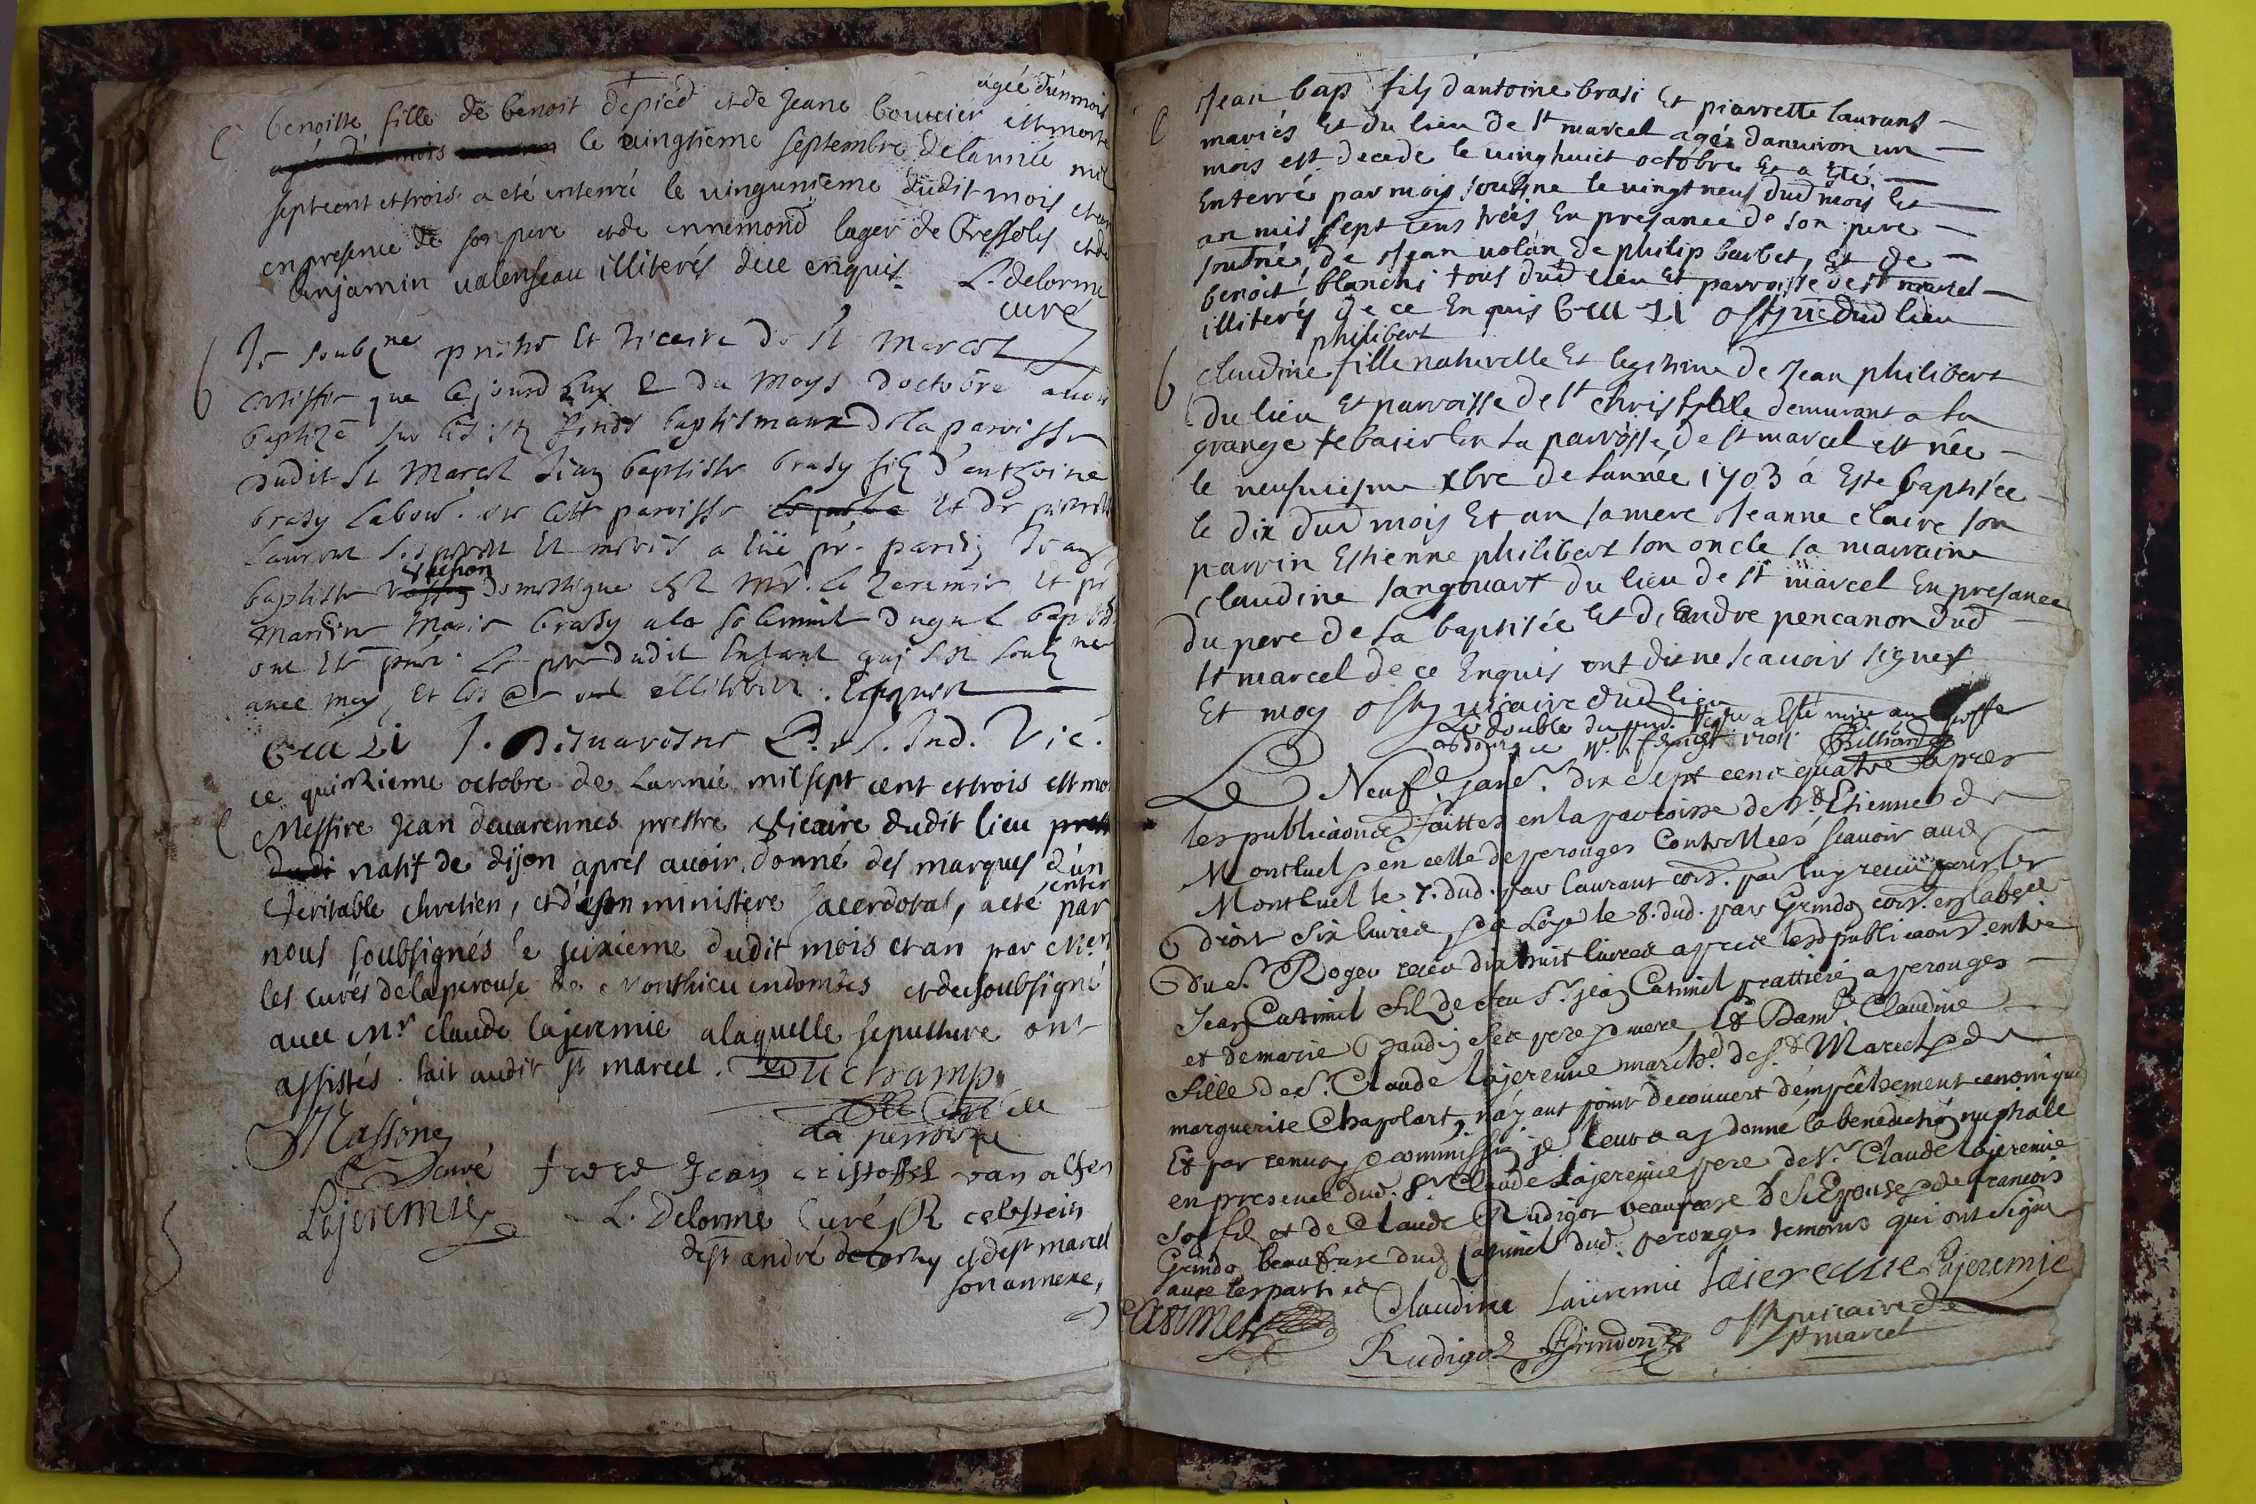 benoiste fille de benoist depiéd et de Jeane bouvier agée d'un mois est morte
le vingtieme septembre de lannée mil
sept cent et trois a eté enterré le vingunieme dudit mois et an
en presence de son pere et de ennemond luger de Tressoles et de
benjamin valenseau illiterés de ce enquis. L. delorme
curé
Je soubz.né prestre et vicaire de St Marcel
certiffie que cejourdhuy 2 du moys d'octobre avoir
baptizé sur les fonds baptismaux de la paroisse
dudit St Marcel Jean baptiste brasy filz d'anthoine
brasy labour. de cette paroisse et de pierrette
Laurent et mariés a eté pr. parrin Jean
baptiste domestique chez Mr. la Jeremie et pr
marrine Marie brasy a la solemnité duquel baptesme
ont eté le pere dudit enfant qui s'est soubz.né
avec moy, et les autres illiterés. Enquis
J. Devaresne P. et Ind. Vic.
ce quinzieme octobre de lannée mil sept cent et trois est mort
Messire Jean devarennes prestre vicaire dudit lieu
natif de dijon apres avoir donné des marques d'un
veritable chretien, et de son ministere sacerdotal, a eté enter
par nous soubsignés le seizieme dudit mois et an par Mrs
les curés de laperouse de Monthieu en dombes et du soubsigné
avec Mr claude lajeremie a laquelle sepulture ont
assistés. fait audit st marcel. Duchamp
Curé de
la perrouse
Massone
Curé frere Jean cristoffel van
Lajeremie L. Delorme Curé
de st andré de corsy et de st marcel
son annexe,
Jean bap fils d'antoine brasi Et piarrette laurans
mariés Et du lieu de st marcel agé d'anuiron un
mois est decede le vinghuict octobre Et a esté
Enterré par mois soubsne le vingt neuf dud mois Et
an mil sept cens trois En presance de son pere
soubné de Jean volan de philip barbet, Et de
benoit blanchi tous dud lieu Et parroisse de st marcel
illiterés de ce Enquis vic dud lieu
philibert
claudine fille naturelle Et legitime de Jean philibert
du lieu Et parroisse de st christophle demurant a la
grange le basier En la parroisse de st marcel est née
le neufuiesme xbre de lannée 1703 a Este baptisée
le dix dud mois Et an sa mere Jeanne claire son
parrin Estienne philibert son oncle sa marraine
claudine sangouart du lieu de st marcel En presance
du pere de la baptisée Et d'andre pencanon dud
st marcel de ce Enquis ont dit ne scavoir signer
Et moy vicaire dud lieu
Le double du pnt. a Esté mise au greffe
Billiard
Le Neufe. janr. dix sept cent quatre apres
les publications faittes en la parroisse de St. Etienne de
Montluel & en celle de perouges Controllées scavoir aud
Montluel le 7. dud. par laurant com. par luy receu pour les
droit six livres & a Loye le 8. dud. par Grindo com. en labse
du Sr. Roger receu dix huit livres apres lesd publications. entre
Jean Catimel fil de feu Sr. jean Catimel prattitien a perouges
et de marie Gaudin ses pere & mere Et Damlle Claudine
fille de Sr. Claude lajeremie march.d de St. Marcel & de
marguerite Chapolart, n'ayant point decouvert d'empêchement canonique
Et par renvoy & commission je leur ay donné la benediction nuptiale
en presence dud. Sr. Claude Lajeremie pere de Sr. Claude lajeremie
son fil et de Claude Rudigoz beaufrere de l'Epouse & de francois
Grindo beaufrere dud Catimel dud. perouges temoins qui ont signé
avec les parties
Catimel Claudine Laieremie Laieremie Lajeremie
Rudigoz Grindon vicaire de
st marcel